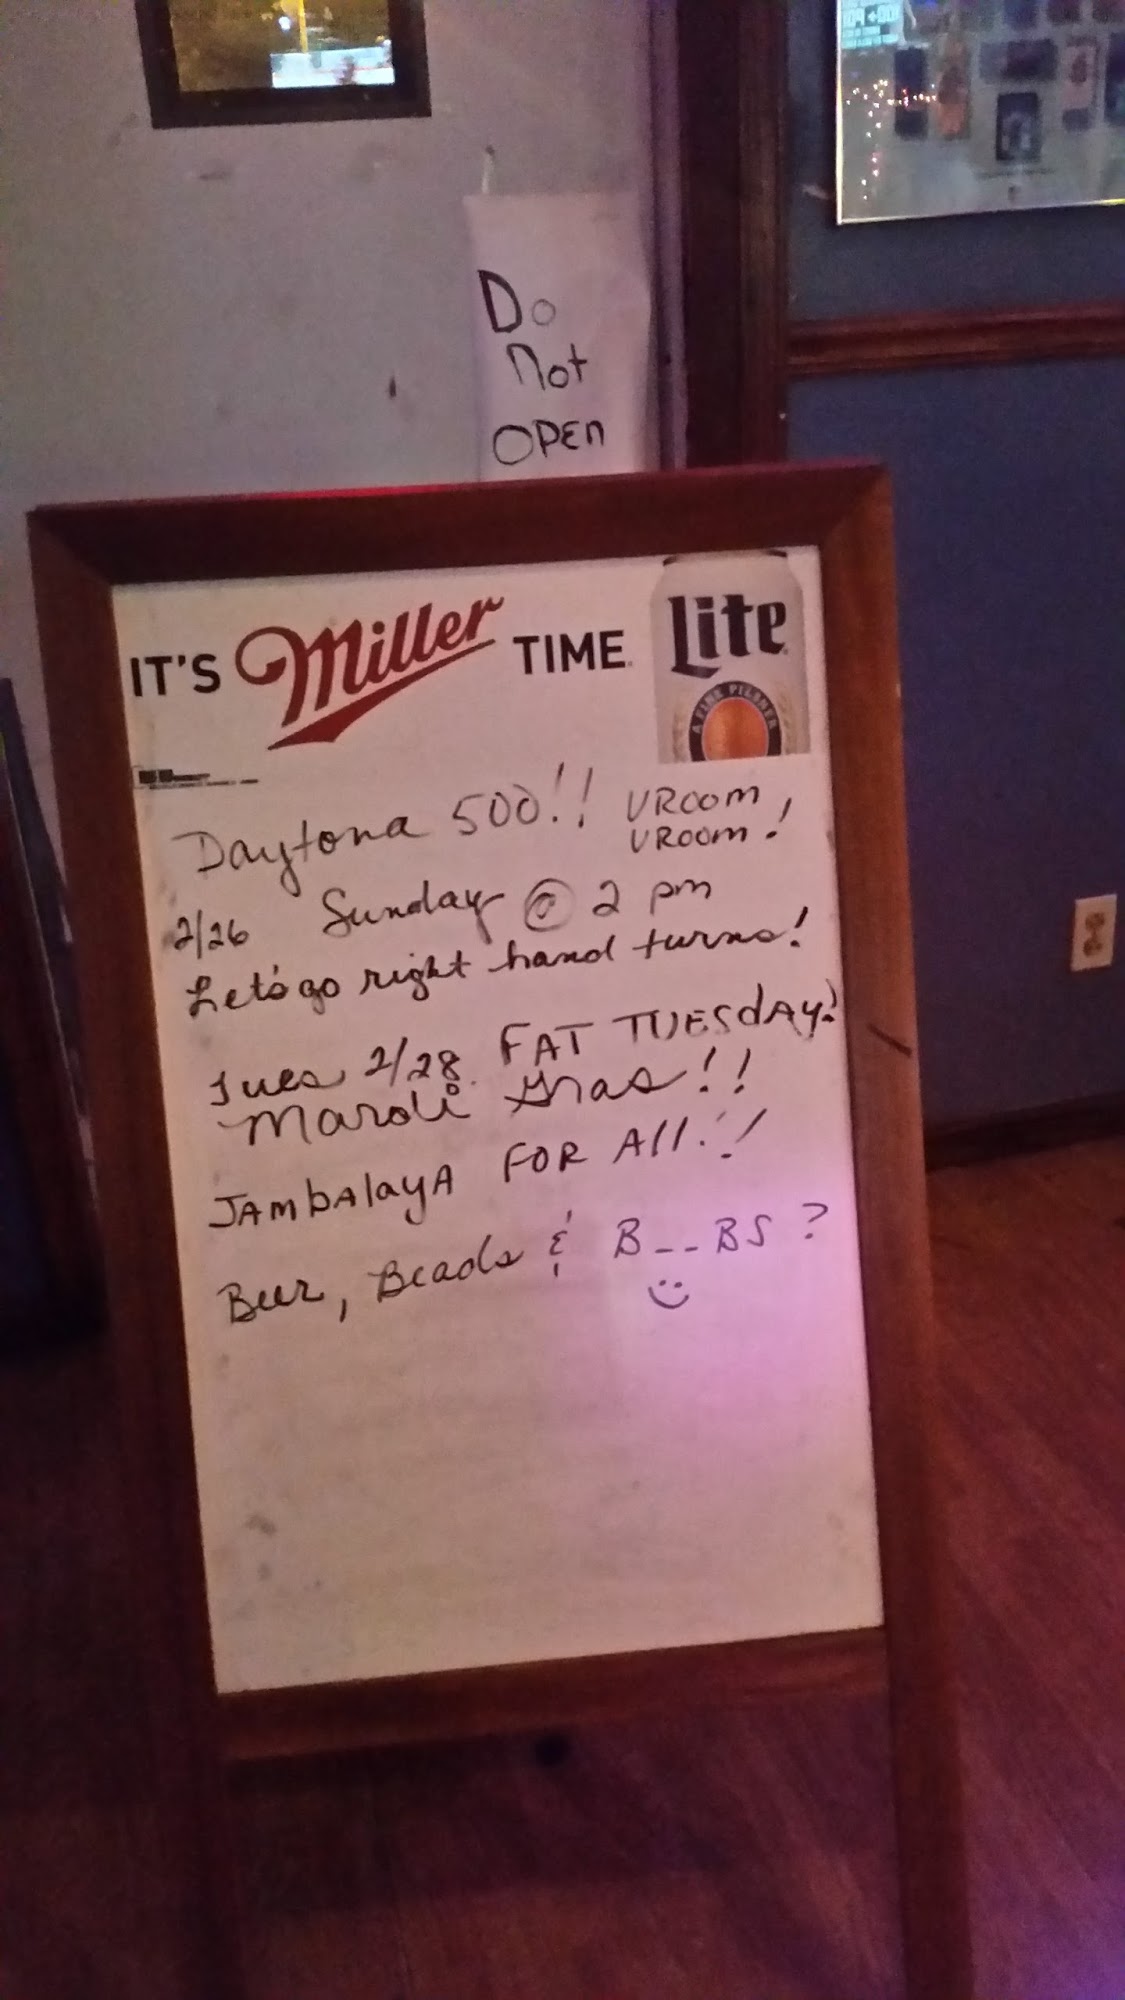 Do
Not
OPEN
IT'S Miller TIME Lite
A FINE PILSNER
Daytona 500!! VROOM
VROOM!
2/26 Sunday @ 2 pm
Let's go right hand turns!
Tues 2/28. FAT TUESdAY!
Mardi Gras!!
JAmbAlayA FOR All!!
Beer, Beads & B__BS?